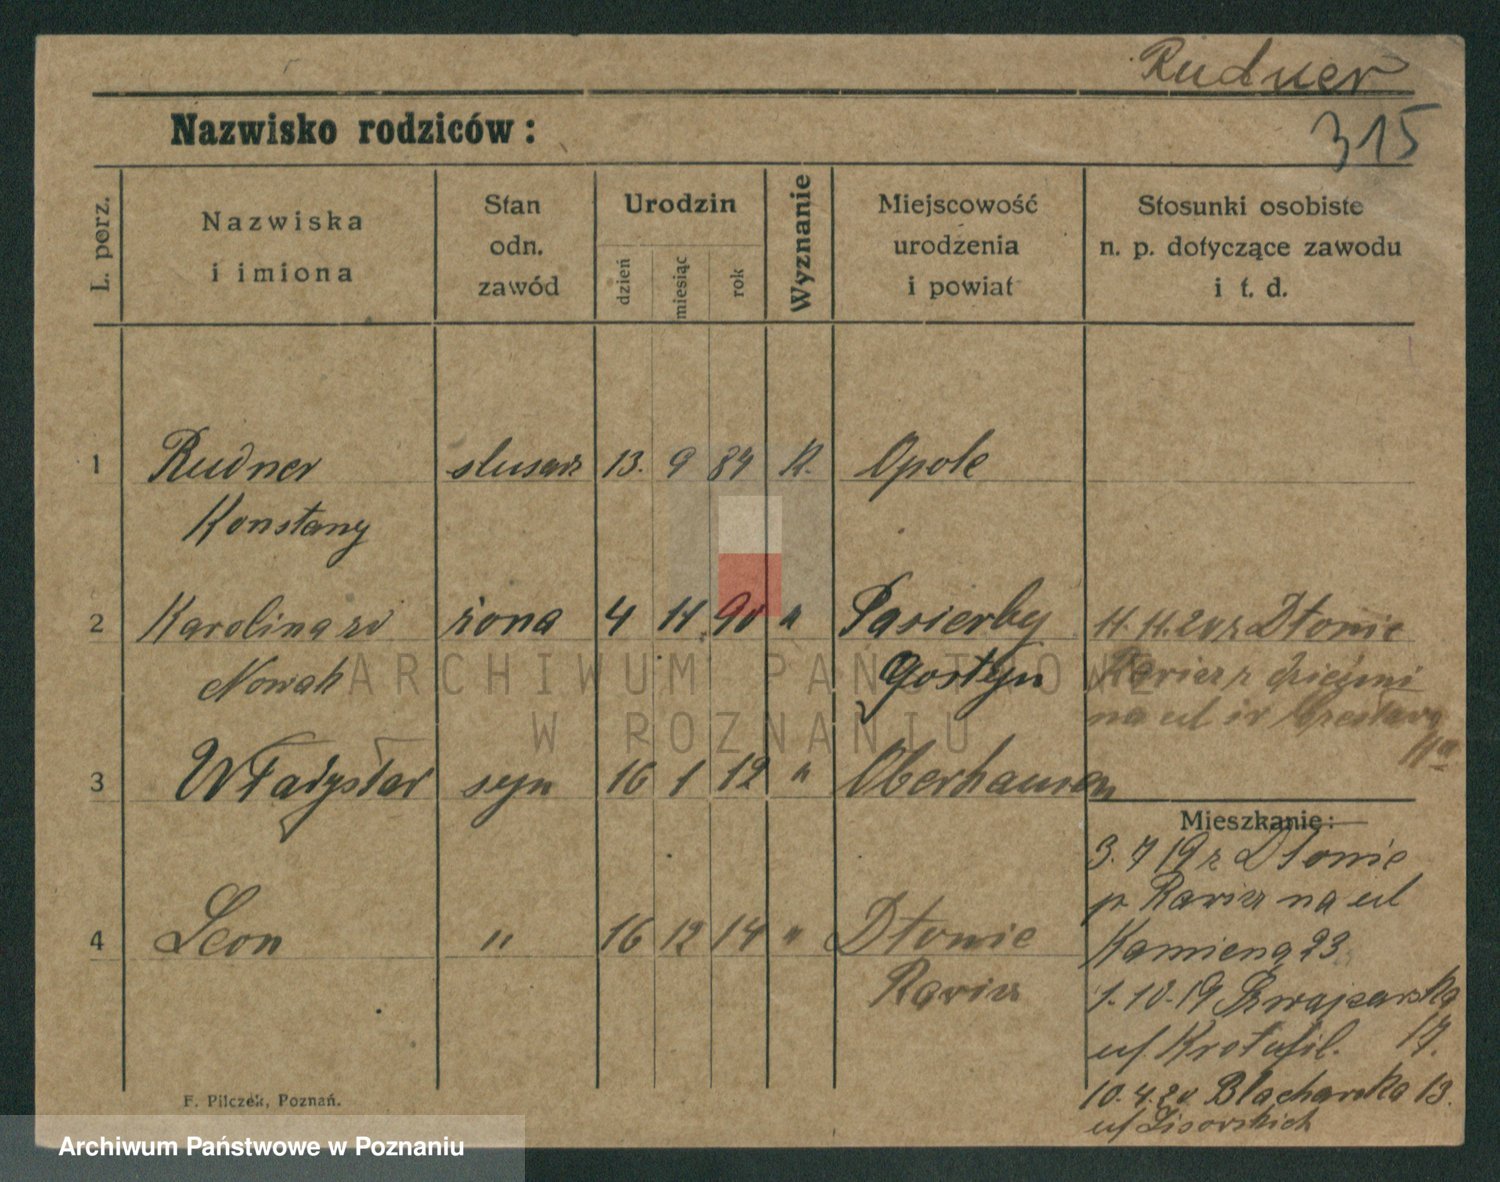 Rudner
315
Nazwisko rodziców:
L. porz.
Nazwiska
i imiona
Stan
odn.
zawód
Urodzin
dzień
miesiąc
rok
Wyznanie
Miejscowość
urodzenia
i powiat
Stosunki osobiste
n. p. dotyczące zawodu
i t. d.
1 Rudner slusarz 13. 9 84 K. Opole
Konstany
2 Karolina zd żona 4 11 90 " Pasierby 11.11.20 z Dłonie
Nowak Gostyn Rawicz z dziećmi
na ul
11a
3 Władysław syn 16 1 12 " Oberhausen
Mieszkanie:
3. 7 19 z Dłonie
p Rawicz na ul
4 Leon " 16 12 14 " Dłonie Kamieną 23
Rawicz 1. 10. 19 Szwajcarska
u/ 17.
10. 4. 20 Blacharska 13.
u/
F. Pilczek, Poznań.
ARCHIWUM PAŃSTWOWE
W POZNANIU
Archiwum Państwowe w Poznaniu